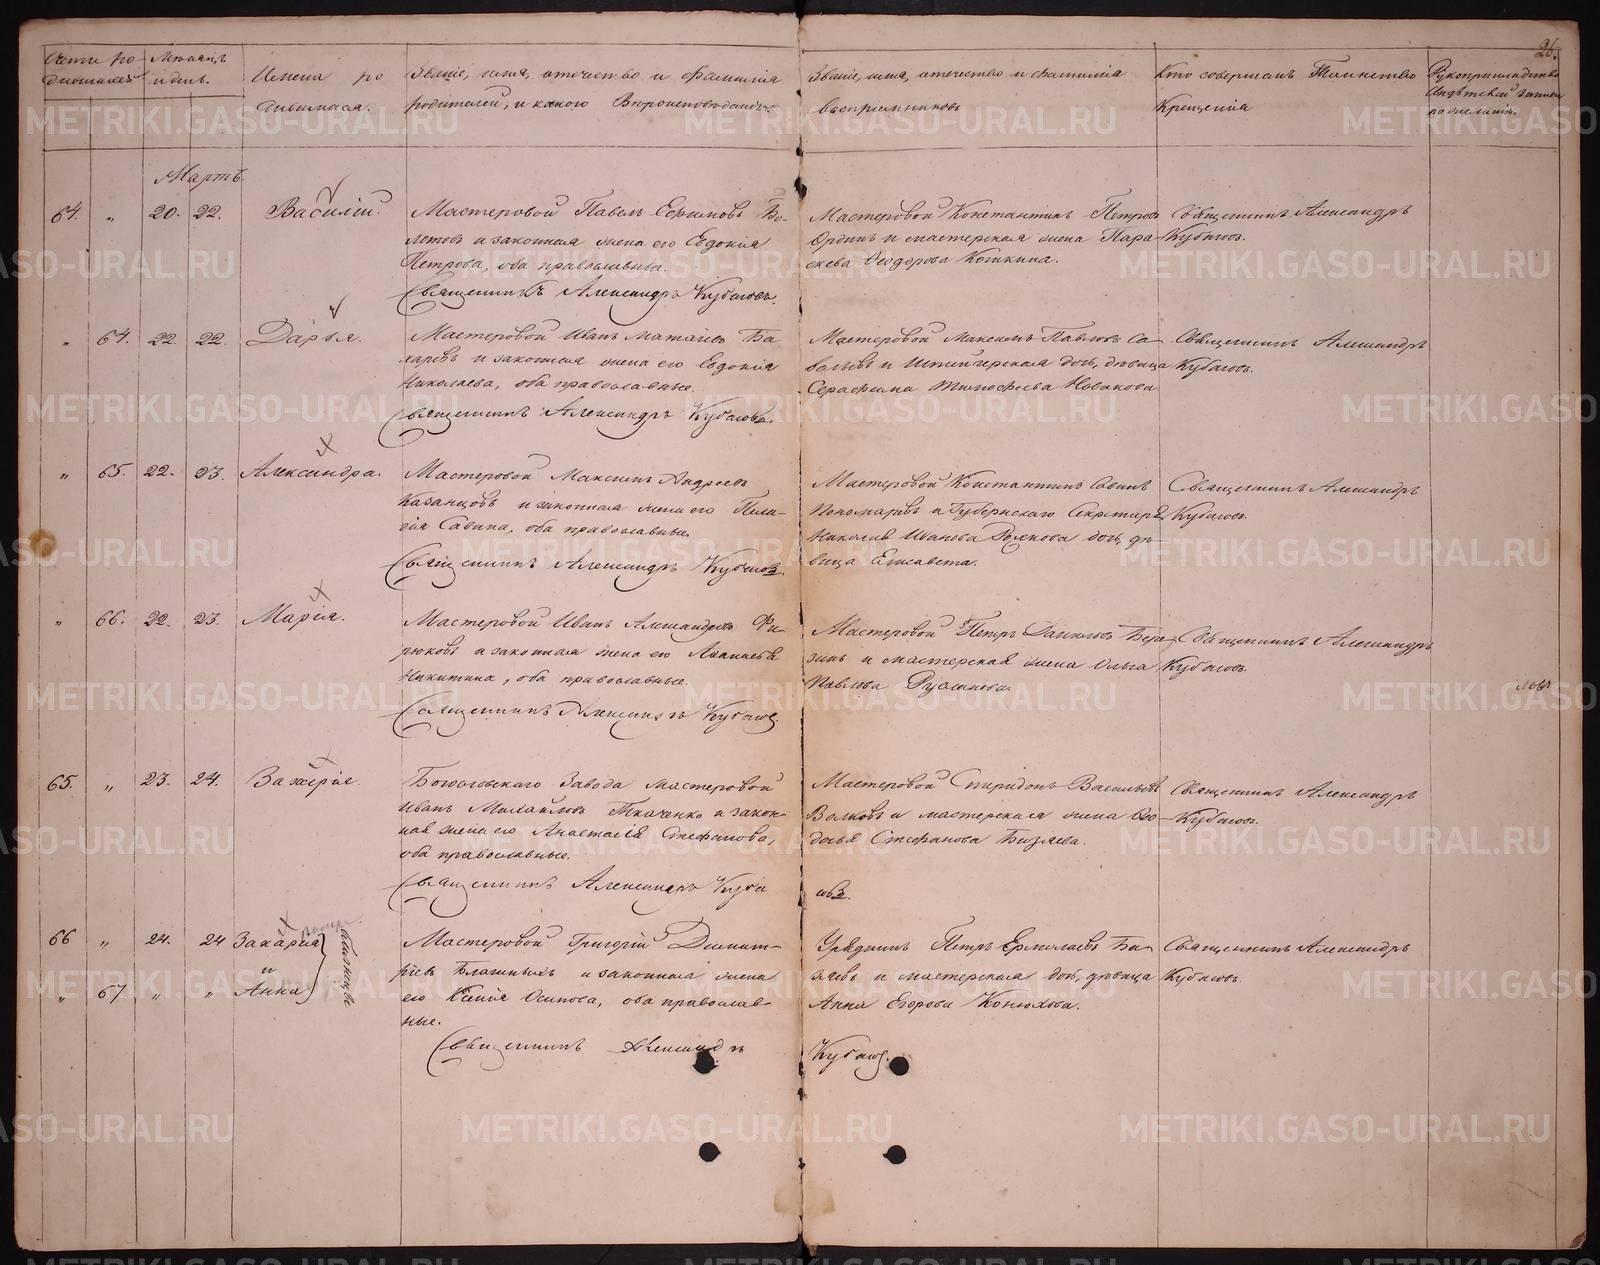 26.
Счетъ ро-
дившихся
Мѣсяцъ
и день.
Имена ро
дившихся.
Званіе, имя, отчество и фамилія
родителей, и какого Вѣроисповѣданія.
Званіе, имя, отчество и фамилія
Воспріемниковъ
Кто совершалъ Таинство
Крещенія
Рукоприкладство
свидѣтелей записи
по желанію.
Мартъ.
64. " 20. 22. Василій.
Мастеровой Павелъ Ефимовъ Бо-
летовъ и законная жена его Евдокія
Петрова, оба православные.
Священникъ Александръ Кубасовъ.
Мастеровой Константинъ Петровъ
Ординъ и мастерская жена Пара-
скева Ѳеодорова Кошкина.
Священникъ Александръ
Кубасовъ.
" 64. 22. 22. Дарья.
Мастеровой Иванъ Матвіевъ Ба
харевъ и законная жена его Евдокія
Николаева, оба православные.
Священникъ Александръ Кубасовъ.
Мастеровой Максимъ Павловъ Са-
вельевъ и дочь, дѣвица
Серафима Тимофеева Новикова
Священникъ Александръ
Кубасовъ.
" 65. 22. 23. Александра.
Мастеровой Максимъ Андреевъ
Казанцовъ и законная жена его Пела-
гія Савина, оба православные.
Священникъ Александръ Кубасовъ.
Мастеровой Константинъ Савинъ
Пономаревъ и Губернскаго Секретаря
Николая Иванова дочь, дѣ-
вица Елисавета.
Священникъ Александръ
Кубасовъ
" 66. 22. 23. Марія.
Мастеровой Иванъ Александровъ Фи-
рюковъ и законная жена его
Никитина, оба православные.
Священникъ Александръ Кубасовъ
Мастеровой Петръ Даниловъ Бере-
зинъ и мастерская жена Ольга
Павлова Русинова
Священникъ Александръ
Кубасовъ
65. " 23. 24. Захарія.
Богословскаго Завода мастеровой
Иванъ Михайловъ Ткаченко и закон-
ная жена его Анастасія Стефанова,
оба православные.
Священникъ Александръ Куба
совъ.
Мастеровой Спиридонъ Васильевъ
Волковъ и мастерская жена Ѳео-
досья Стефанова Бизяева.
Священникъ Александръ
Кубасовъ.
66 " 24. 24 Захарія
и
" 67 " " Анна
близнецы
Мастеровой Григорій Димит-
ріевъ Блашныхъ и законная жена
его Ксенія Осипова, оба православ-
ные.
Священникъ Александръ
Кубасовъ.
Урядникъ Петръ Ермолаевъ Би-
зяевъ и мастерская дочь, дѣвица
Анна Егорова Конюхова.
Священникъ Александръ
Кубасовъ.
METRIKI.GASO-URAL.RU